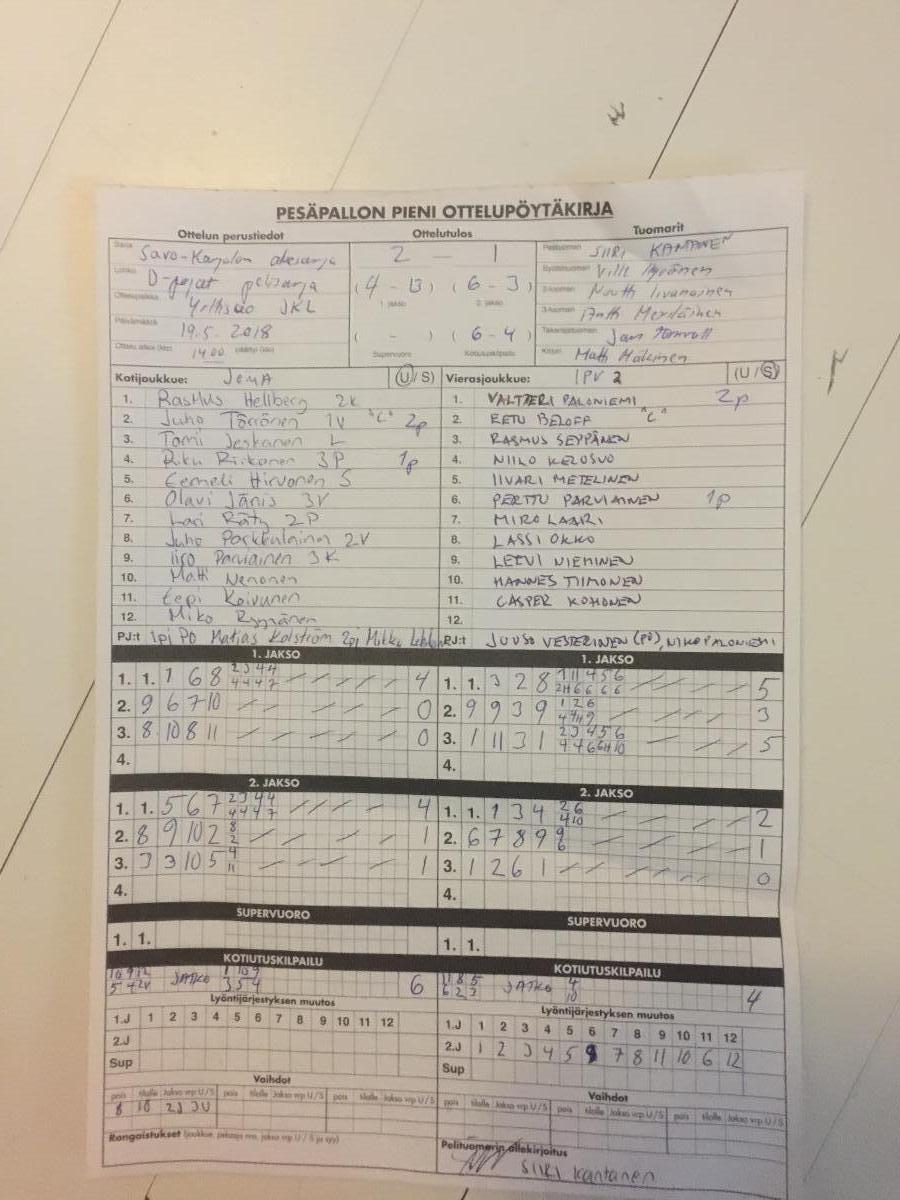 PESÄPALLON PIENI OTTELUPÖYTÄKIRJA
Ottelun perustiedot Ottelutulos Tuomarit
Sarja Savo-Karjalan aluesarja 2 - 1 Pelituomari SIIRI KANTANEN
Lohko D-pojat pelisarja (4 - 13) (6 - 3) Syöttötuomari Ville
1. jakso 2. jakso
Ottelupaikka JKL 2-tuomari Iivanainen
Päivämäärä 19.5. 2018 ( - ) (6 - 4) 3-tuomari
Ottelu alkoi (klo) 14.00 päättyi (klo) Supervuoro Kotiutuskilpailu Takarajatuomari Jani
Kirjuri Matti Mäkinen
Kotijoukkue: JoMA (U/S) Vierasjoukkue: IPV 2 (U/S)
1. Rasmus Hellberg 2K 1. VALTTERI PALONIEMI 2p
2. Juho Törrönen 1V "C" 2p 2. EETU BELOFF "C"
3. Tomi Jeskanen L 3. RASMUS SEPPÄNEN
4. Riku Riikonen 3P 1p 4. NIILO KELOSUO
5. Eemeli Hirvonen S 5. IIVARI METELINEN
6. Olavi Jänis 3V 6. PERTTU PARVIAINEN 1p
7. Lari Räty 2P 7. MIRO LAARI
8. Juho 2V 8. LASSI OKKO
9. Iiro Parviainen 3K 9. LEEVI NIEMINEN
10. Matti Nenonen 10. HANNES TIIMONEN
11. Eepi Koivunen 11. CASPER KOHONEN
12. Miko Ryynänen 12.
PJ:t 1pj PO Matias Kolström 2pj Mikko PJ:t JUUSO VESTERINEN (PJ), NIKO PALONIEMI
1. JAKSO 1. JAKSO
1. 1. 1 6 8 2 3 4 4 4 1. 1. 3 2 8 1 11 4 5 6 5
4 4 4 7
2. 9 6 7 10 0 2. 9 9 3 9 1 2 6 3
3. 8 10 8 11 0 3. 1 11 3 1 2 3 4 5 6 5
4. 4.
2. JAKSO 2. JAKSO
1. 1. 5 6 7 2 3 4 4 4 1. 1. 1 3 4 2 6 2
4 4 4 7 4 10
2. 8 9 10 2 8 1 2. 6 7 8 9 9 1
2 6
3. 3 3 10 5 4 1 3. 1 2 6 1 0
11
4. 4.
SUPERVUORO SUPERVUORO
1. 1. 1. 1.
KOTIUTUSKILPAILU KOTIUTUSKILPAILU
JATKO 1 10 9 6 11 8 5 JATKO 4 4
3 5 4 6 2 3 10
Lyöntijärjestyksen muutos Lyöntijärjestyksen muutos
1.J 1 2 3 4 5 6 7 8 9 10 11 12 1.J 1 2 3 4 5 6 7 8 9 10 11 12
2.J 2.J 1 2 3 4 5 9 7 8 11 10 6 12
Sup Sup
Vaihdot Vaihdot
pois tilalle Jakso vrp U/S pois tilalle Jakso vrp U/S pois tilalle Jakso vrp U/S pois tilalle Jakso vrp U/S pois tilalle Jakso vrp U/S pois tilalle Jakso vrp U/S
8 10 2J 3U
Rangaistukset (joukkue, pelaaja nro, jakso vrp U/S ja syy) Pelituomarin allekirjoitus
SIIRI Kantanen